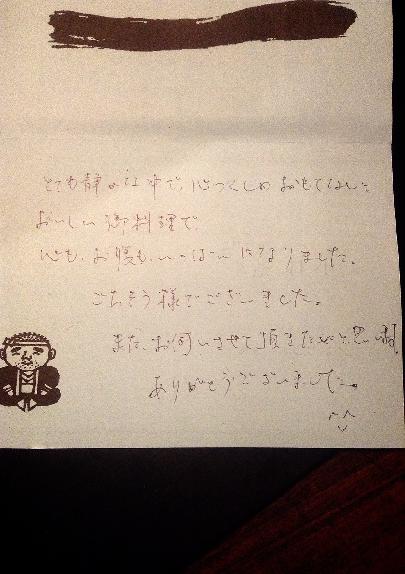 とても静かな中で、心づくしのおもてなしと
おいしい御料理で、
心も、お腹も、いっぱいになりました。
ごちそう様でございました。
また、お伺いさせて頂きたいと思います。
ありがとうございました。
^^